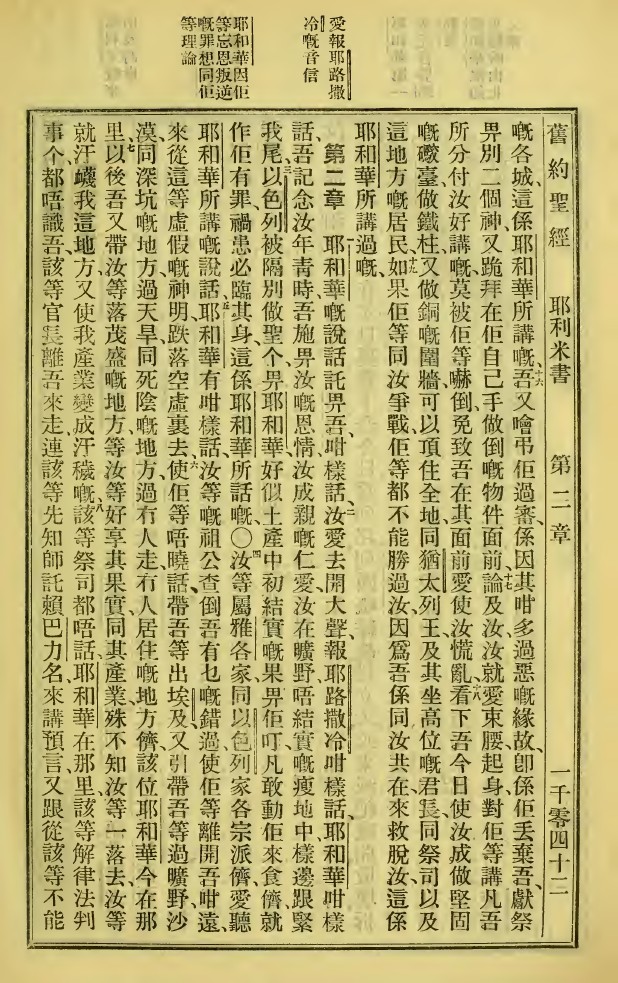 舊約聖經 耶利米書 第二章 一千零四十二
嘅各城、這係耶和華所講嘅、十六吾又噲弔佢過審、係因其咁多過惡嘅緣故、卽係佢丢棄吾、獻祭
畀別二個神、又跪拜在佢自己手做倒嘅物件面前、十七論及汝、汝就愛束腰起身、對佢等講凡吾
所分付汝好講嘅、莫被佢等嚇倒、免致吾在其面前愛使汝慌亂、十八看下、吾今日使汝成做堅固
嘅礮臺、做鐵柱、又做銅嘅圍牆、可以頂住全地、同猶太列王、及其坐高位嘅君長、同祭司、以及
這地方嘅居民、十九如果佢等同汝爭戰、佢等都不能勝過汝、因爲吾係同汝共在、來救脫汝、這係
耶和華所講過嘅、
愛報耶路撒
冷嘅音信
第二章 耶和華嘅說話託畀吾、咁樣話、二汝愛去開大聲、報耶路撒冷咁樣話、耶和華咁樣
話、吾記念汝年靑時、吾施畀汝嘅恩情、汝成親嘅仁愛、汝在曠野、唔結實嘅瘦地中樣邊跟緊
我尾、三以色列被隔別做聖个畀耶和華、好似土產中初結實嘅果畀佢叮、凡敢動佢來食儕、就
作佢有罪、禍患必臨其身、這係耶和華所話嘅、〇四汝等屬雅各家、同以色列家各宗派儕、愛聽
耶和華因佢
等忘恩叛逆
嘅罪想同佢
等理論
耶和華所講嘅說話、五耶和華有咁樣話、汝等嘅祖公查倒吾有乜嘅錯過、使佢等離開吾咁遠、
來從這等虛假嘅神明、跌落空虛裏去、六使佢等唔曉話、帶吾等出埃及、又引帶吾等過曠野沙
漠、同深坑嘅地方、過天旱同死陰嘅地方、過冇人走、冇人居住嘅地方儕、該位耶和華今在那
里、七以後吾又帶汝等落茂盛嘅地方、等汝等好享其果實、同其產業、殊不知汝等一落去、汝等
就汙衊我這地方、又使我產業變成汙穢嘅、八該等祭司都唔話、耶和華在那里、該等解律法判
事个、都唔識吾、該等官長離吾來走、連該等先知師託賴巴力名、來講預言、又跟從該等不能